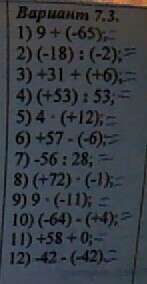 Вариант 7.3.
1) 9 + (-65);=
2) (-18) : (-2);=
3) +31 + (+6);=
4) (+53) : 53;=
5) 4 · (+12);=
6) +57 - (-6);=
7) -56 : 28;=
8) (+72) · (-1);=
9) 9 · (-11);=
10) (-64) - (+4);=
11) +58 + 0;=
12) -42 - (-42).=